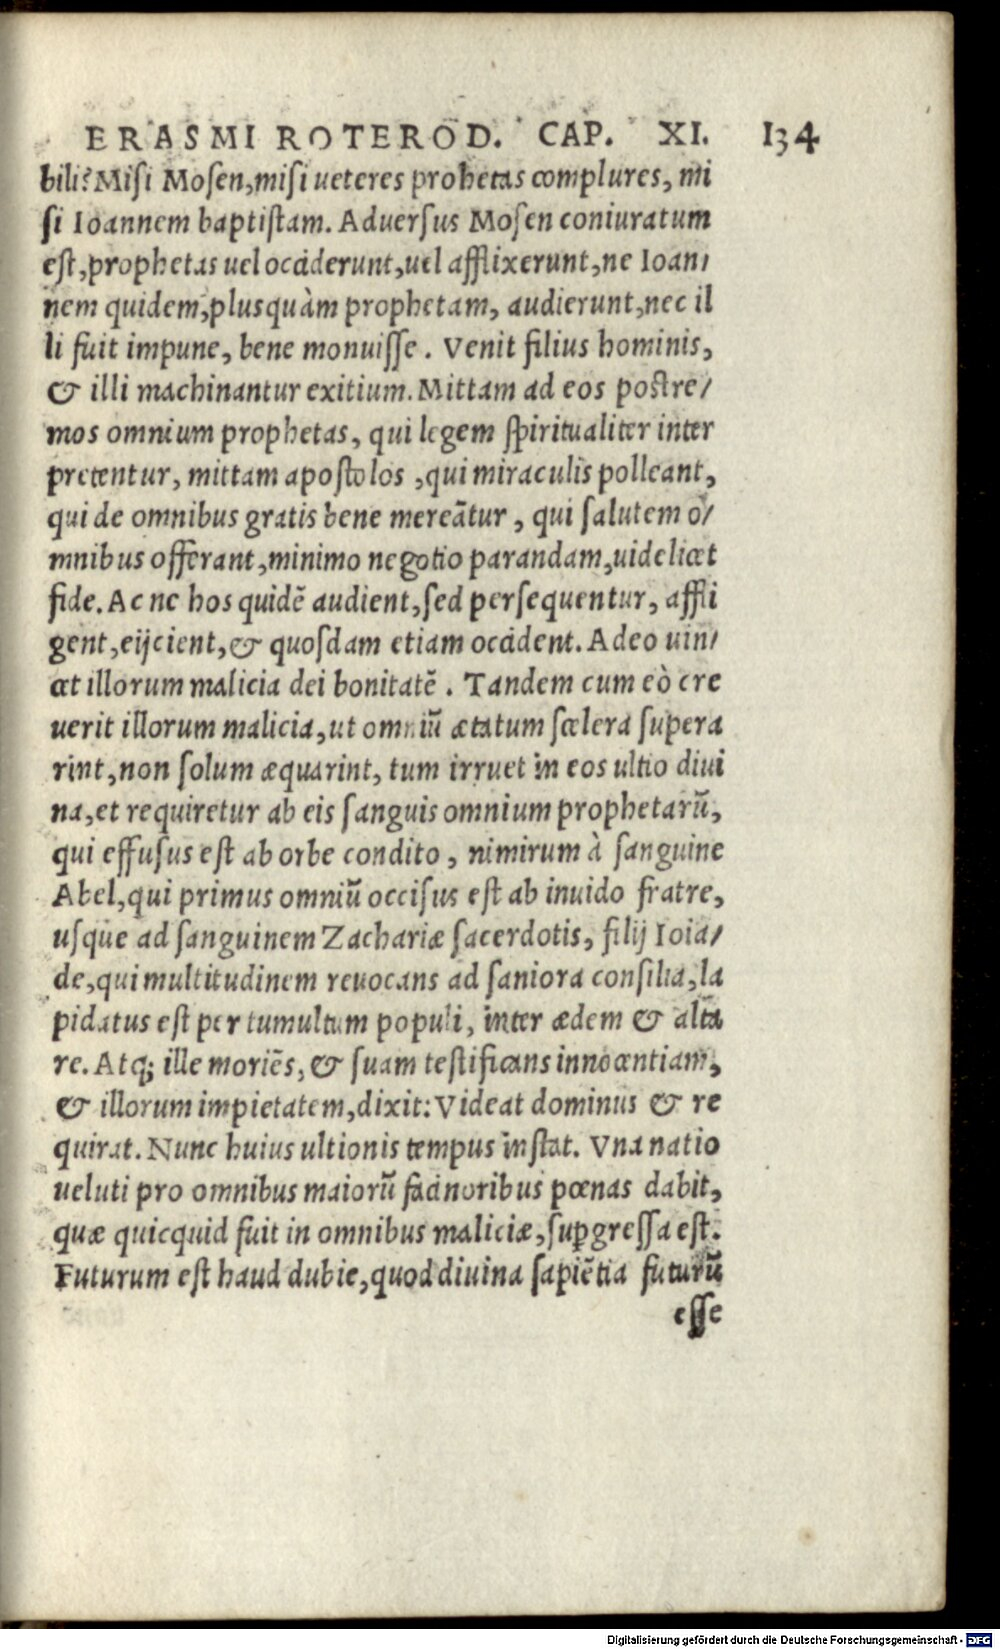 ERASMI ROTEROD. CAP. XI. 134
bili? Misi Mosen, misi ueteres prohetas complures, mi
si Ioannem baptistam. Aduersus Mosen coniuratum
est, prophetas uel occiderunt, uel afflixerunt, ne Ioan/
nem quidem, plusquàm prophetam, audierunt, nec il
li fuit impune, bene monuisse. Venit filius hominis,
& illi machinantur exitium. Mittam ad eos postre/
mos omnium prophetas, qui legem spiritualiter inter
pretentur, mittam apostolos, qui miraculis polleant,
qui de omnibus gratis bene mereãtur, qui salutem o/
mnibus offerant, minimo negotio parandam, uidelicet
fide. Ac ne hos quidẽ audient, sed persequentur, affli
gent, eijcient, & quosdam etiam occident. Adeo uin/
cet illorum malicia dei bonitatẽ. Tandem cum eò cre
uerit illorum malicia, ut omniũ ætatum scelera supera
rint, non solum æquarint, tum irruet in eos ultio diui
na, et requiretur ab eis sanguis omnium prophetarũ,
qui effusus est ab orbe condito, nimirum à sanguine
Abel, qui primus omniũ occisus est ab inuido fratre,
usque ad sanguinem Zachariæ sacerdotis, filij Ioia/
de, qui multitudinem reuocans ad saniora consilia, la
pidatus est per tumultum populi, inter ædem & alta
re. Atq; ille moriẽs, & suam testificans innocentiam,
& illorum impietatem, dixit: Videat dominus & re
quirat. Nunc huius ultionis tempus instat. Vna natio
ueluti pro omnibus maiorũ facinoribus pœnas dabit,
quæ quicquid fuit in omnibus maliciæ, suꝑgressa est.
Futurum est haud dubie, quod diuina sapiẽtia futurũ
esse
Digitalisierung gefördert durch die Deutsche Forschungsgemeinschaft - DFG